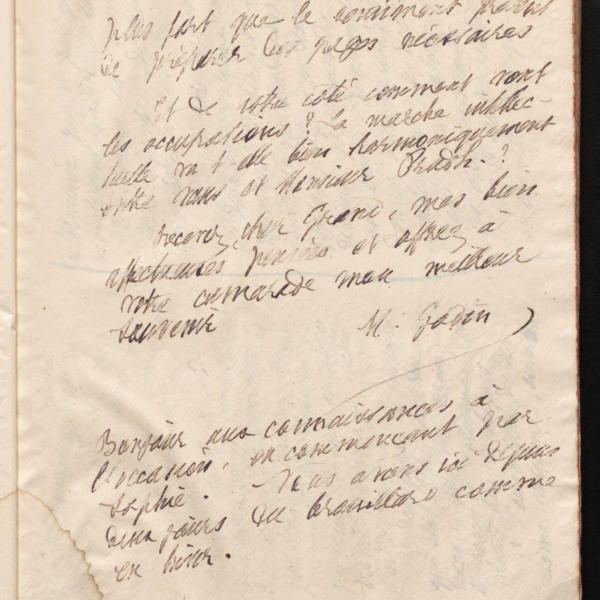 plus fort que le sentiment présent
de préparer les pages nécessaires
Et de votre côté comment vont
les occupations ? La marche intellec-
tuelle va t-elle bien harmoniquement
entre vous et Monsieur Pradh. ?
Recevez, cher Grand, mes bien
affectueuses pensées et offrez à
votre camarade mon meilleur
souvenir
M. Godin
Bonjour aux connaissances à
l'occasion, en commençant par
Sophie. Nous avons ici depuis
deux jours du brouillard comme
en hiver.